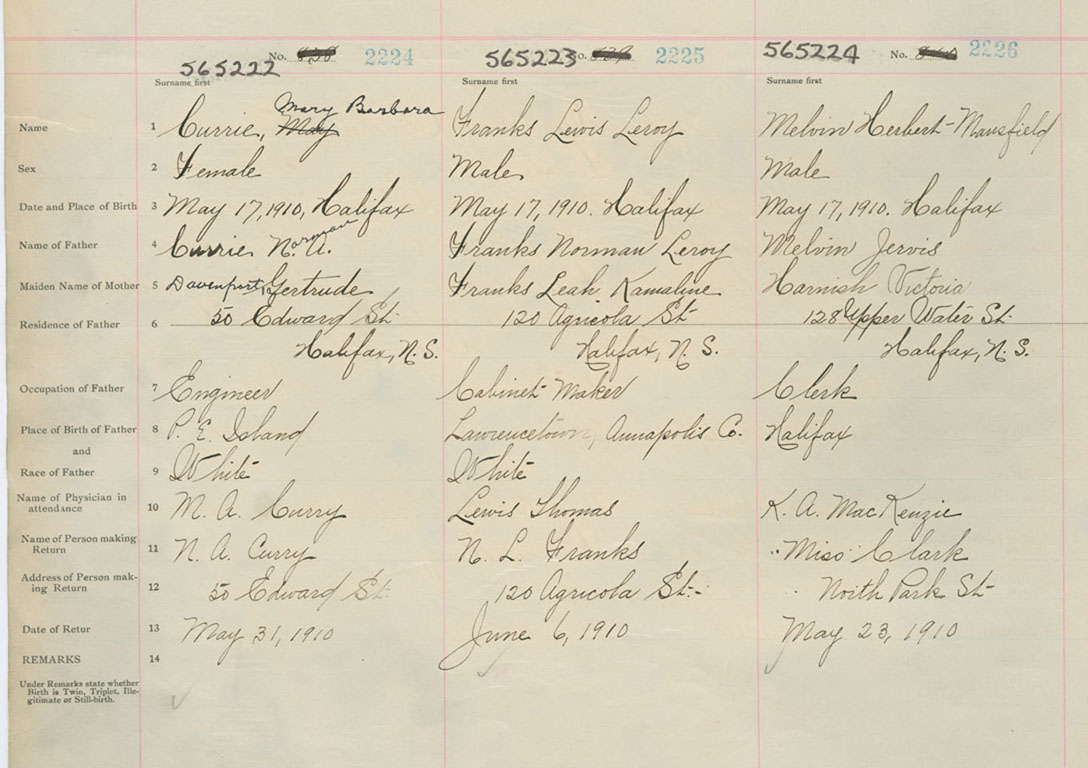 565222 No. 2224 565223 No. 2225 565224 No. 2226
Surname first Surname first Surname first
Mary Barbara
Name 1 Currie, May Franks Lewis Leroy Melvin Herbert Mansfield
Sex 2 Female Male Male
Date and Place of Birth 3 May 17, 1910, Halifax May 17, 1910. Halifax May 17, 1910. Halifax
Name of Father 4 Currie N. A. Norman Franks Norman Leroy Melvin Jervis
Maiden Name of Mother 5 Davenport, Gertrude Franks Leah Kamaline Harnish Victoria
Residence of Father 6 50 Edward St. 120 Agricola St 128 Upper Water St.
Halifax, N.S. Halifax, N.S. Halifax, N.S.
Occupation of Father 7 Engineer Cabinet Maker Clerk
Place of Birth of Father 8 P. E. Island Lawrencetown, Annapolis Co. Halifax
and
Race of Father 9 White White
Name of Physician in
attendance 10 M. A. Curry Lewis Thomas K. A. MacKenzie
Name of Person making
Return 11 N. A. Curry N. L. Franks Miss Clark
Address of Person mak-
ing Return 12 50 Edward St. 120 Agricola St. North Park St
Date of Retur 13 May 31, 1910 June 6, 1910 May 23, 1910
REMARKS 14
Under Remarks state whether
Birth is Twin, Triplet, Ille-
gitimate or Still-birth.